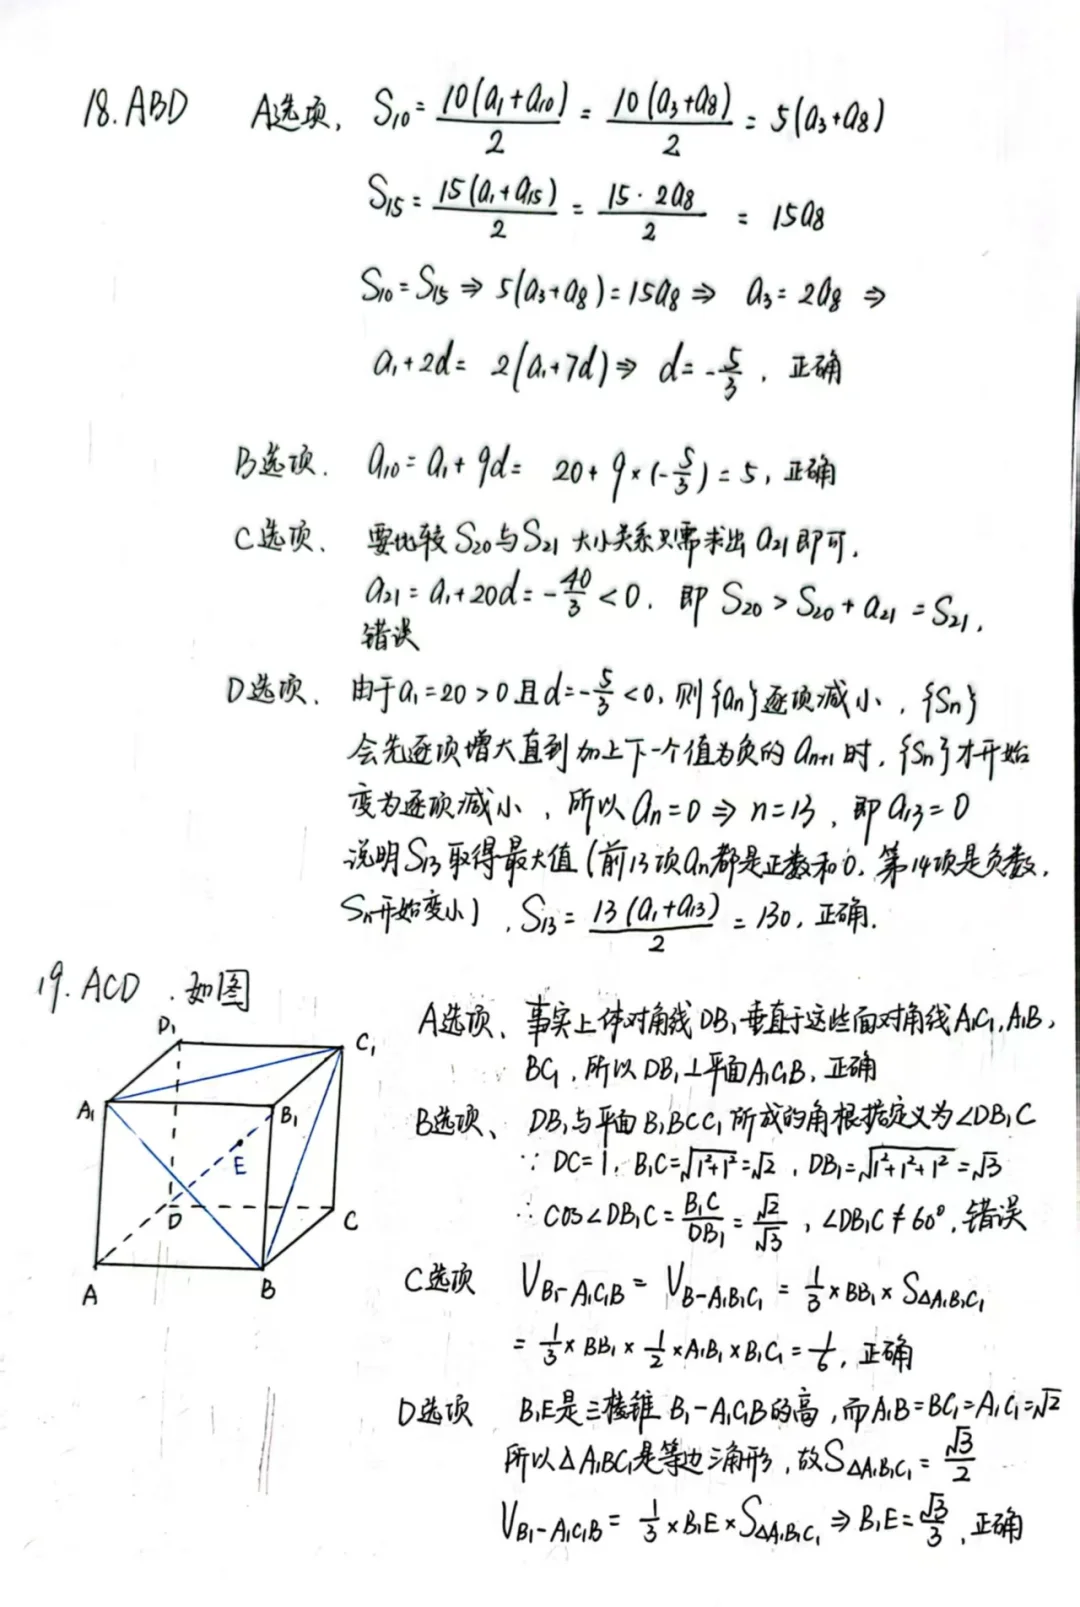 18. ABD A选项、S₁₀ = 10(a₁+a₁₀)/2 = 10(a₃+a₈)/2 = 5(a₃+a₈)
S₁₅ = 15(a₁+a₁₅)/2 = 15·2a₈/2 = 15a₈
S₁₀ = S₁₅ ⇒ 5(a₃+a₈) = 15a₈ ⇒ a₃ = 2a₈ ⇒
a₁+2d = 2(a₁+7d) ⇒ d = -5/3, 正确
B选项、a₁₀ = a₁+9d = 20+9×(-5/3) = 5, 正确
C选项、要比较S₂₀与S₂₁大小关系只需求出a₂₁即可,
a₂₁ = a₁+20d = -40/3 < 0, 即 S₂₀ > S₂₀+a₂₁ = S₂₁,
错误
D选项、由于a₁=20>0且d=-5/3<0, 则{aₙ}逐项减小, {Sₙ}
会先逐项增大直到加上下一个值为负的aₙ₊₁时, {Sₙ}才开始
变为逐项减小, 所以aₙ=0 ⇒ n=13, 即a₁₃=0
说明S₁₃取得最大值(前13项aₙ都是正数和0, 第14项是负数,
Sₙ开始变小), S₁₃ = 13(a₁+a₁₃)/2 = 130, 正确.
19. ACD, 如图
D₁
C₁
A₁
B₁
E
D
C
A
B
A选项、事实上体对角线DB₁垂直于这些面对角线A₁C₁, A₁B,
BC₁, 所以DB₁⊥平面A₁C₁B, 正确
B选项、DB₁与平面B₁BCC₁所成的角根据定义为∠DB₁C
∵ DC=1, B₁C=√(1²+1²)=√2, DB₁=√(1²+1²+1²)=√3
∴ cos∠DB₁C = B₁C/DB₁ = √2/√3, ∠DB₁C≠60°, 错误
C选项 V_{B₁-A₁C₁B} = V_{B-A₁B₁C₁} = 1/3×BB₁×S_{△A₁B₁C₁}
= 1/3×BB₁×1/2×A₁B₁×B₁C₁ = 1/6, 正确
D选项 B₁E是三棱锥B₁-A₁C₁B的高, 而A₁B=BC₁=A₁C₁=√2
所以△A₁BC₁是等边三角形, 故S_{△A₁B₁C₁} = √3/2
V_{B₁-A₁C₁B} = 1/3×B₁E×S_{△A₁B₁C₁} ⇒ B₁E = √3/3, 正确